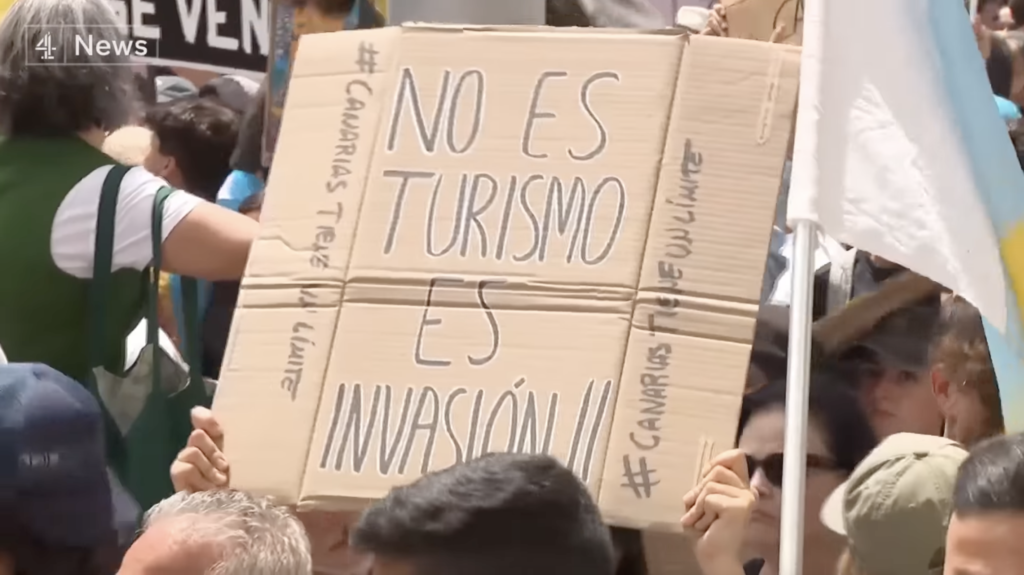 4 News
E VEN
#CANARIAS TIENE UN LÍMITE
NO ES
TURISMO
ES
INVASIÓN!!
#CANARIAS TIENE UN LÍMITE